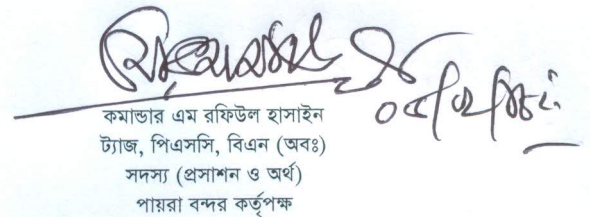 কমান্ডার এম রফিউল হাসাইন
ট্যাজ, পিএসসি, বিএন (অবঃ)
সদস্য (প্রসাশন ও অর্থ)
পায়রা বন্দর কর্তৃপক্ষ